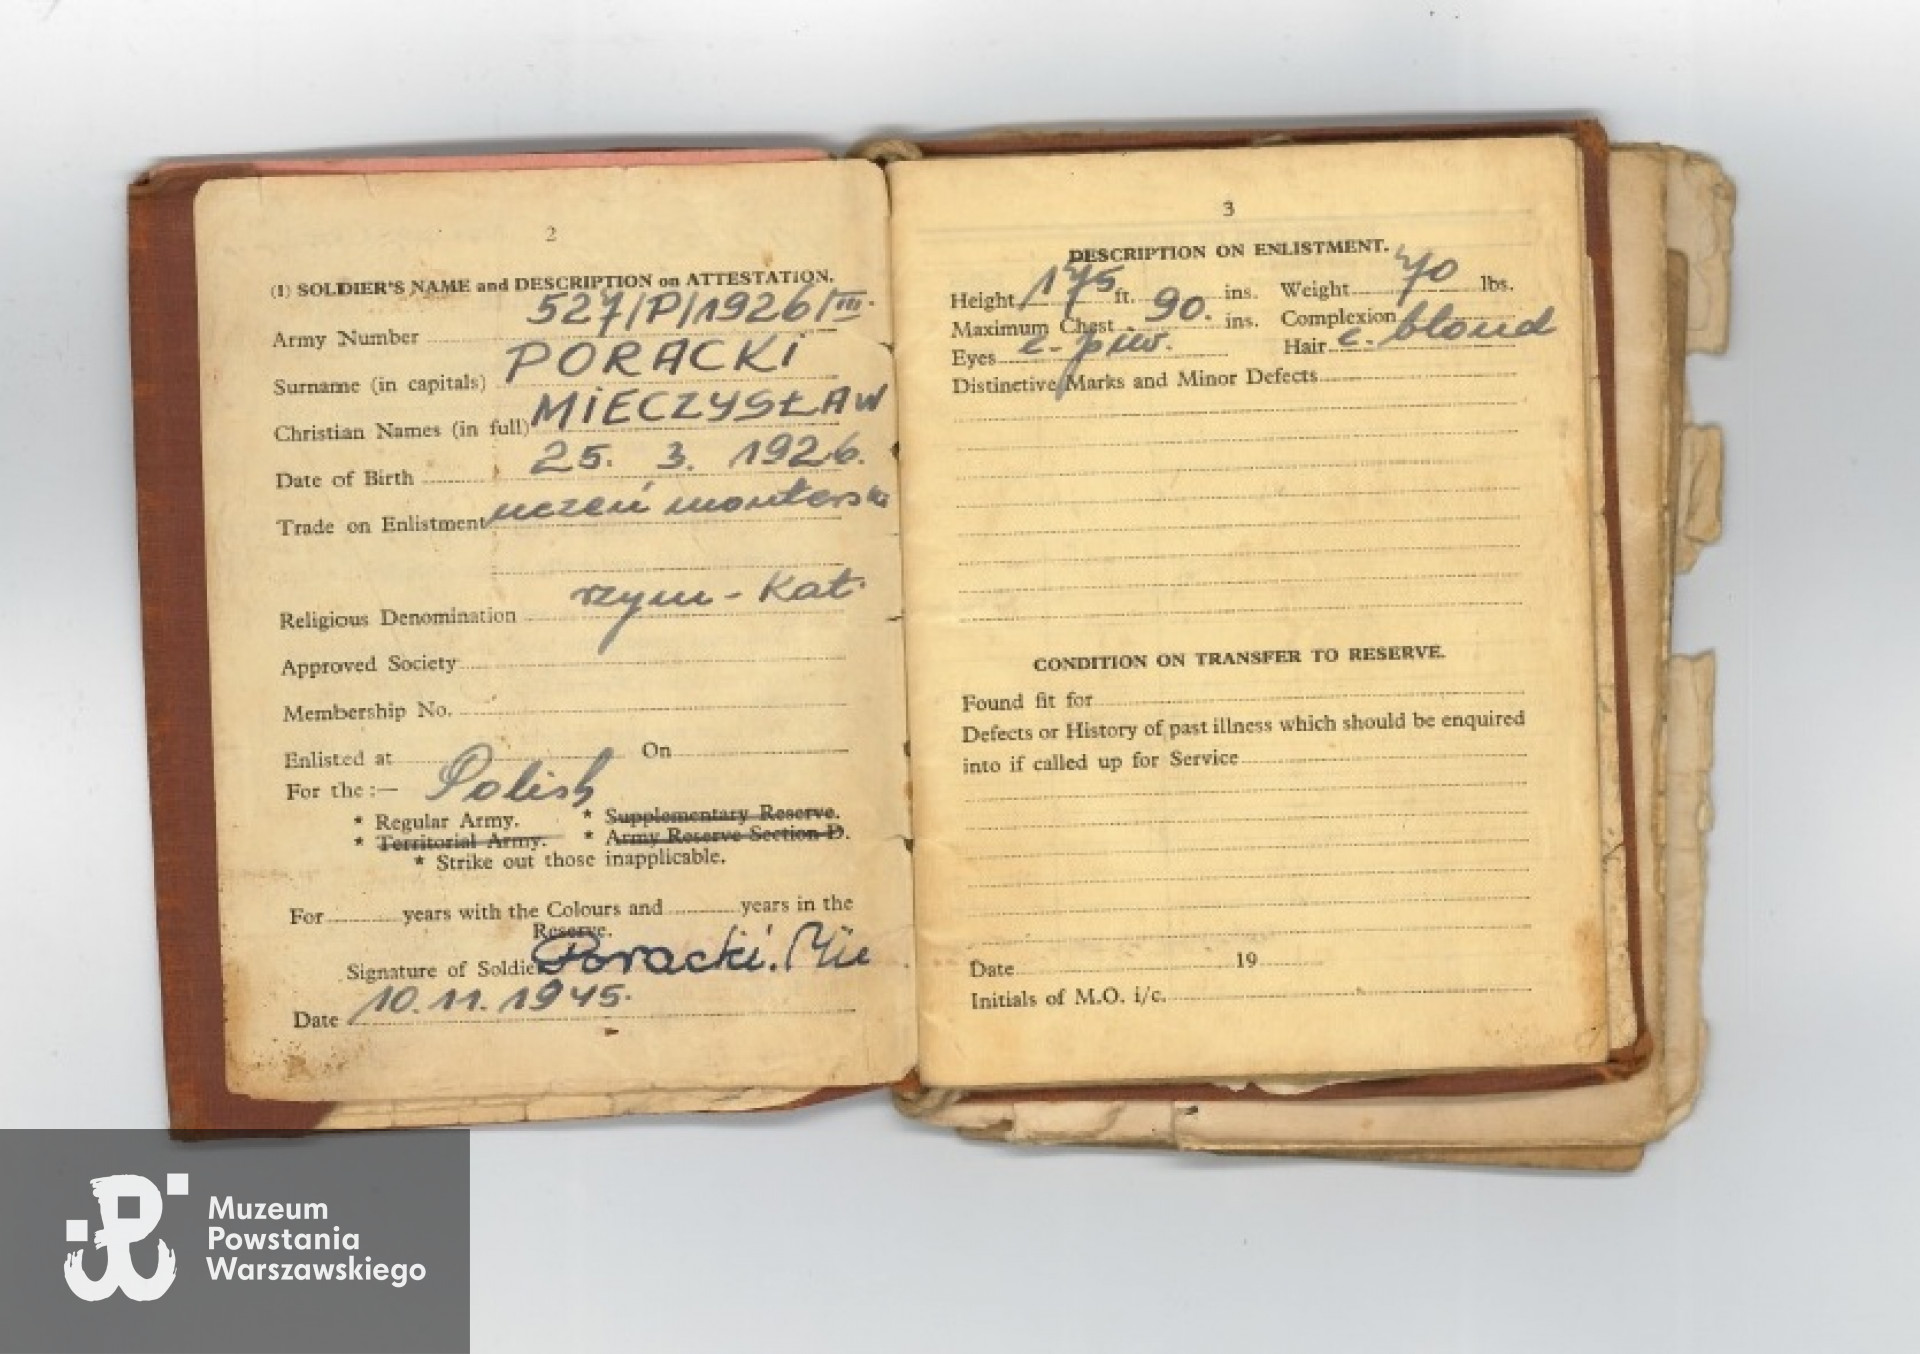 2
(1) SOLDIER'S NAME and DESCRIPTION on ATTESTATION.
Army Number 527/P/1926/III.
Surname (in capitals) PORACKI
Christian Names (in full) MIECZYSŁAW
Date of Birth 25. 3. 1926.
Trade on Enlistment uczeń monterski
Religious Denomination rzym-kat.
Approved Society
Membership No.
Enlisted at On
For the :— Polish
* Regular Army. * Supplementary Reserve.
* Territorial Army. * Army Reserve Section D.
* Strike out those inapplicable.
For years with the Colours and years in the
Reserve.
Signature of Soldier Poracki. Mie
Date 10.11.1945.
3
DESCRIPTION ON ENLISTMENT.
Height 175 ft. ins. Weight 70 lbs.
Maximum Chest 90. ins. Complexion
Eyes c. piw. Hair c. blond
Distinctive Marks and Minor Defects
CONDITION ON TRANSFER TO RESERVE.
Found fit for
Defects or History of past illness which should be enquired
into if called up for Service
Date 19
Initials of M.O. i/c.
Muzeum
Powstania
Warszawskiego